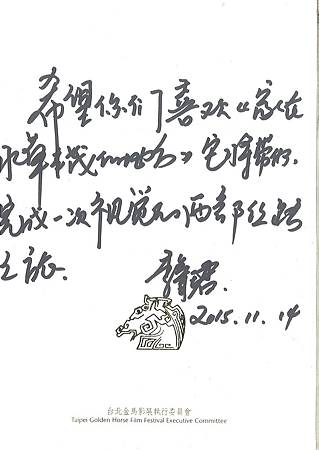 希望你们喜欢《家在
水草丰茂的地方》它将带你们,
完成一次视觉的西部丝路
之旅.
2015.11.14
台北金馬影展執行委員會
Taipei Golden Horse Film Festival Executive Committee